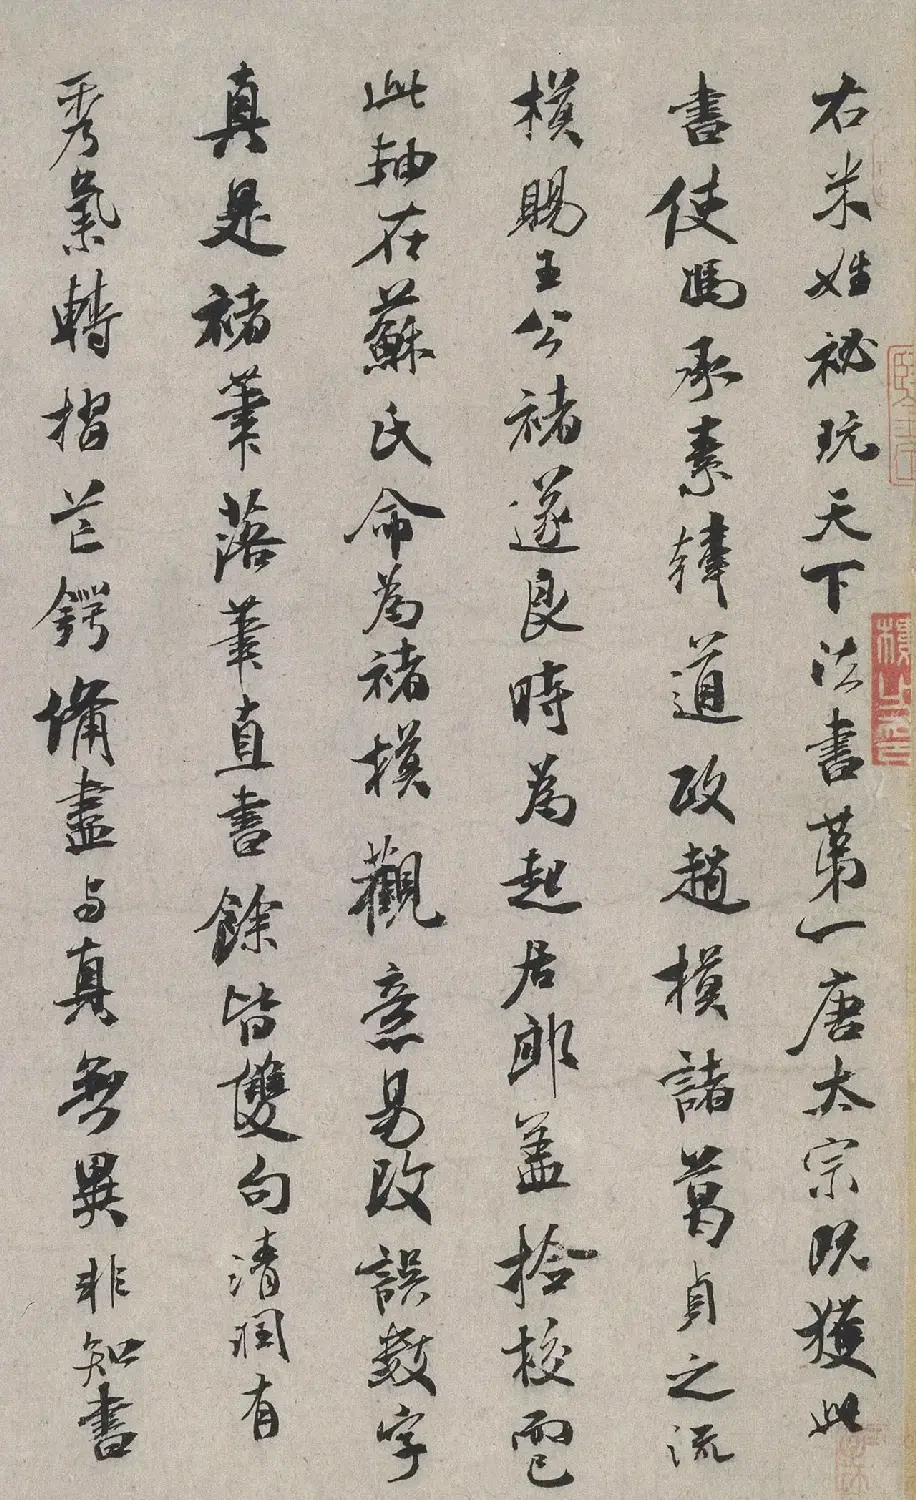 右米姓祕玩天下法書第一唐太宗既獲此
書使馮承素韓道政趙模諸葛貞之流
模賜王公褚遂良時為起居郎蓋撿校而已
此軸在蘇氏命為褚模觀意易改誤數字
真是褚筆落筆直書餘皆雙句清潤有
秀氣轉摺芒鍔備盡與真無異非知書